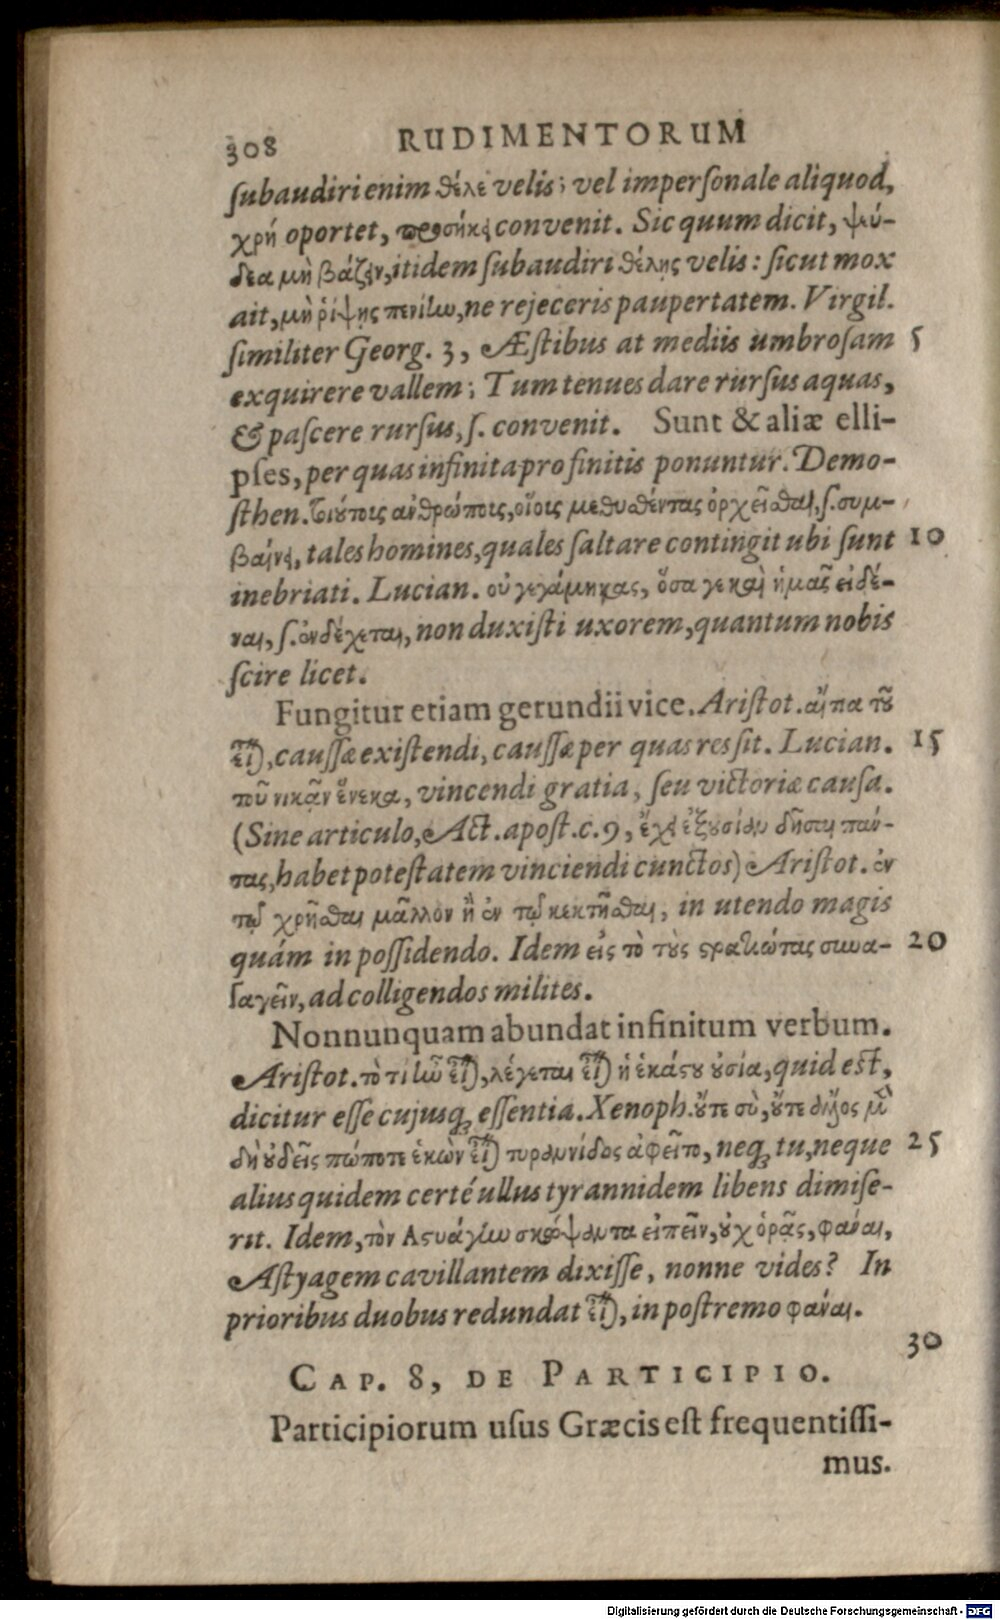 308 RUDIMENTORUM
ſubaudiri enim θέλε velis; vel imperſonale aliquod,
χρή oportet, προσήκει convenit. Sic quum dicit, ψεύ-
δεα μὴ βάζειν, itidem ſubaudiri θέλῃς velis: ſicut mox
ait, μὴ ῥίψῃς πενίην, ne rejeceris paupertatem. Virgil.
ſimiliter Georg. 3, Æſtibus at mediis umbroſam 5
exquirere vallem; Tum tenues dare rurſus aquas,
& paſcere rurſus, ſ. convenit. Sunt & aliæ elli-
pſes, per quas infinita pro finitis ponuntur. Demo-
ſthen. τοιούτοις ἀνθρώποις, οἵοις μεθυσθέντας ὀρχεῖσθαι, ſ. συμ-
βαίνει, tales homines, quales ſaltare contingit ubi ſunt 10
inebriati. Lucian. οὐ γεγάμηκας, ὅσα γε καὶ ἡμᾶς εἰδέ-
ναι, ſ. ἐνδέχεται, non duxiſti uxorem, quantum nobis
ſcire licet.
Fungitur etiam gerundii vice. Ariſtot. αἴτια τοῦ
εἶναι, cauſſæ exiſtendi, cauſſæ per quas res ſit. Lucian. 15
τοῦ νικᾶν ἕνεκα, vincendi gratia, ſeu victoriæ cauſa.
(Sine articulo, Act. apoſt. c. 9, ἔχει ἐξουσίαν δῆσαι πάν-
τας, habet poteſtatem vinciendi cunctos) Ariſtot. ἐν
τῷ χρῆσθαι μᾶλλον ἢ ἐν τῷ κεκτῆσθαι, in utendo magis
quám in poſſidendo. Idem εἰς τὸ τοὺς στρατιώτας συνα- 20
γαγεῖν, ad colligendos milites.
Nonnunquam abundat infinitum verbum.
Ariſtot. τὸ τί ἦν εἶναι, λέγεται εἶναι ἡ ἑκάστου οὐσία, quid eſt,
dicitur eſſe cujusq; eſſentia. Xenoph. οὔτε σὺ, οὔτε ἄλλος μὲν
δὴ οὐδεῖς πώποτε ἑκὼν εἶναι τυραννίδος ἀφεῖτο, neq; tu, neque 25
alius quidem certé ullus tyrannidem libens dimiſe-
rit. Idem, τὸν Ἀστυάγην σκώψαντα εἰπεῖν, οὐχ ὁρᾷς, φάναι,
Aſtyagem cavillantem dixiſſe, nonne vides? In
prioribus duobus redundat εἶναι, in poſtremo φάναι.
30
CAP. 8, DE PARTICIPIO.
Participiorum uſus Græcis eſt frequentiſſi-
mus.
Digitalisierung gefördert durch die Deutsche Forschungsgemeinschaft - DFG